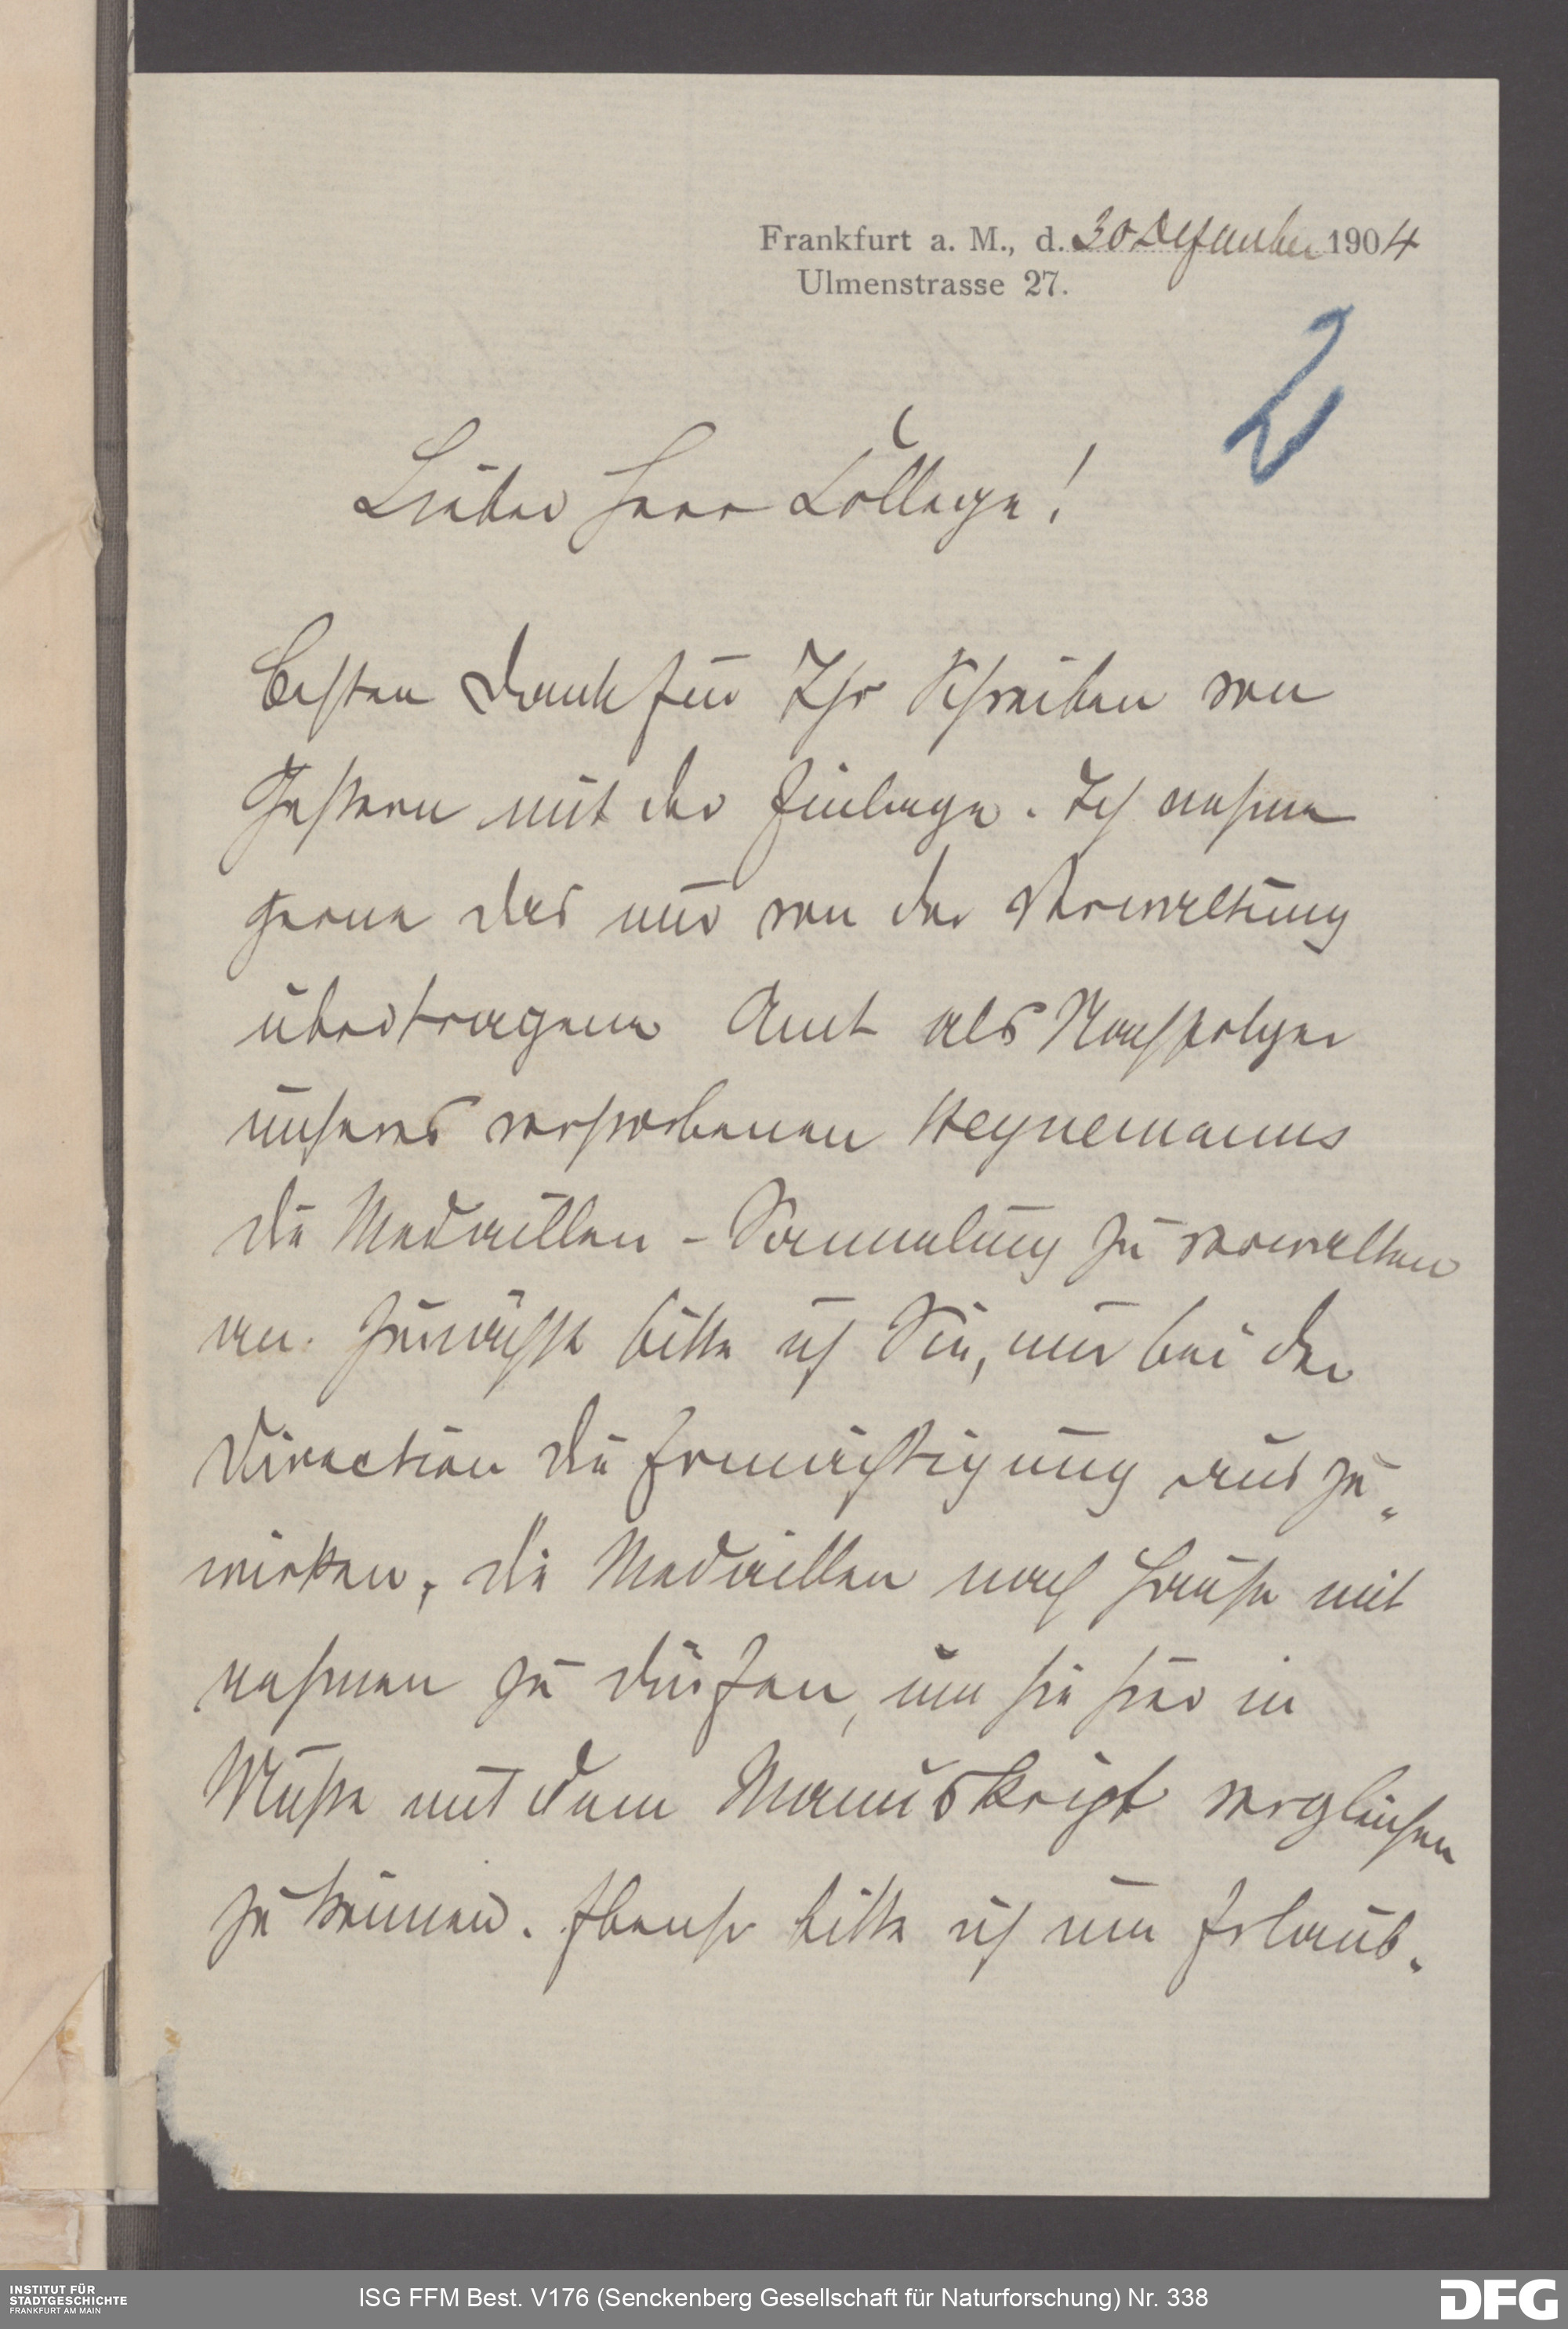 Frankfurt a. M., d. 30 Dezember 1904
Ulmenstrasse 27.
Lieber Herr College!
Besten Dank für Ihr Schreiben von
Gestern mit der Einlage. Ich nehme
gerne das mir von der Verwaltung
übertragene Amt als Nachfolger
unseres verstorbenen Heynemanns
die Medaillen-Sammlung zu verwalten
an. Zunächst bitte ich Sie, mir bei der
Direction die Ermächtigung auszu-
wirken, die Medaillen nach Hause mit
nehmen zu dürfen, um sie hier in
Muße mit dem Manuskript vergleichen
zu können. Ebenso bitte ich um Erlaub-
INSTITUT FÜR
STADTGESCHICHTE
FRANKFURT AM MAIN
ISG FFM Best. V176 (Senckenberg Gesellschaft für Naturforschung) Nr. 338
DFG